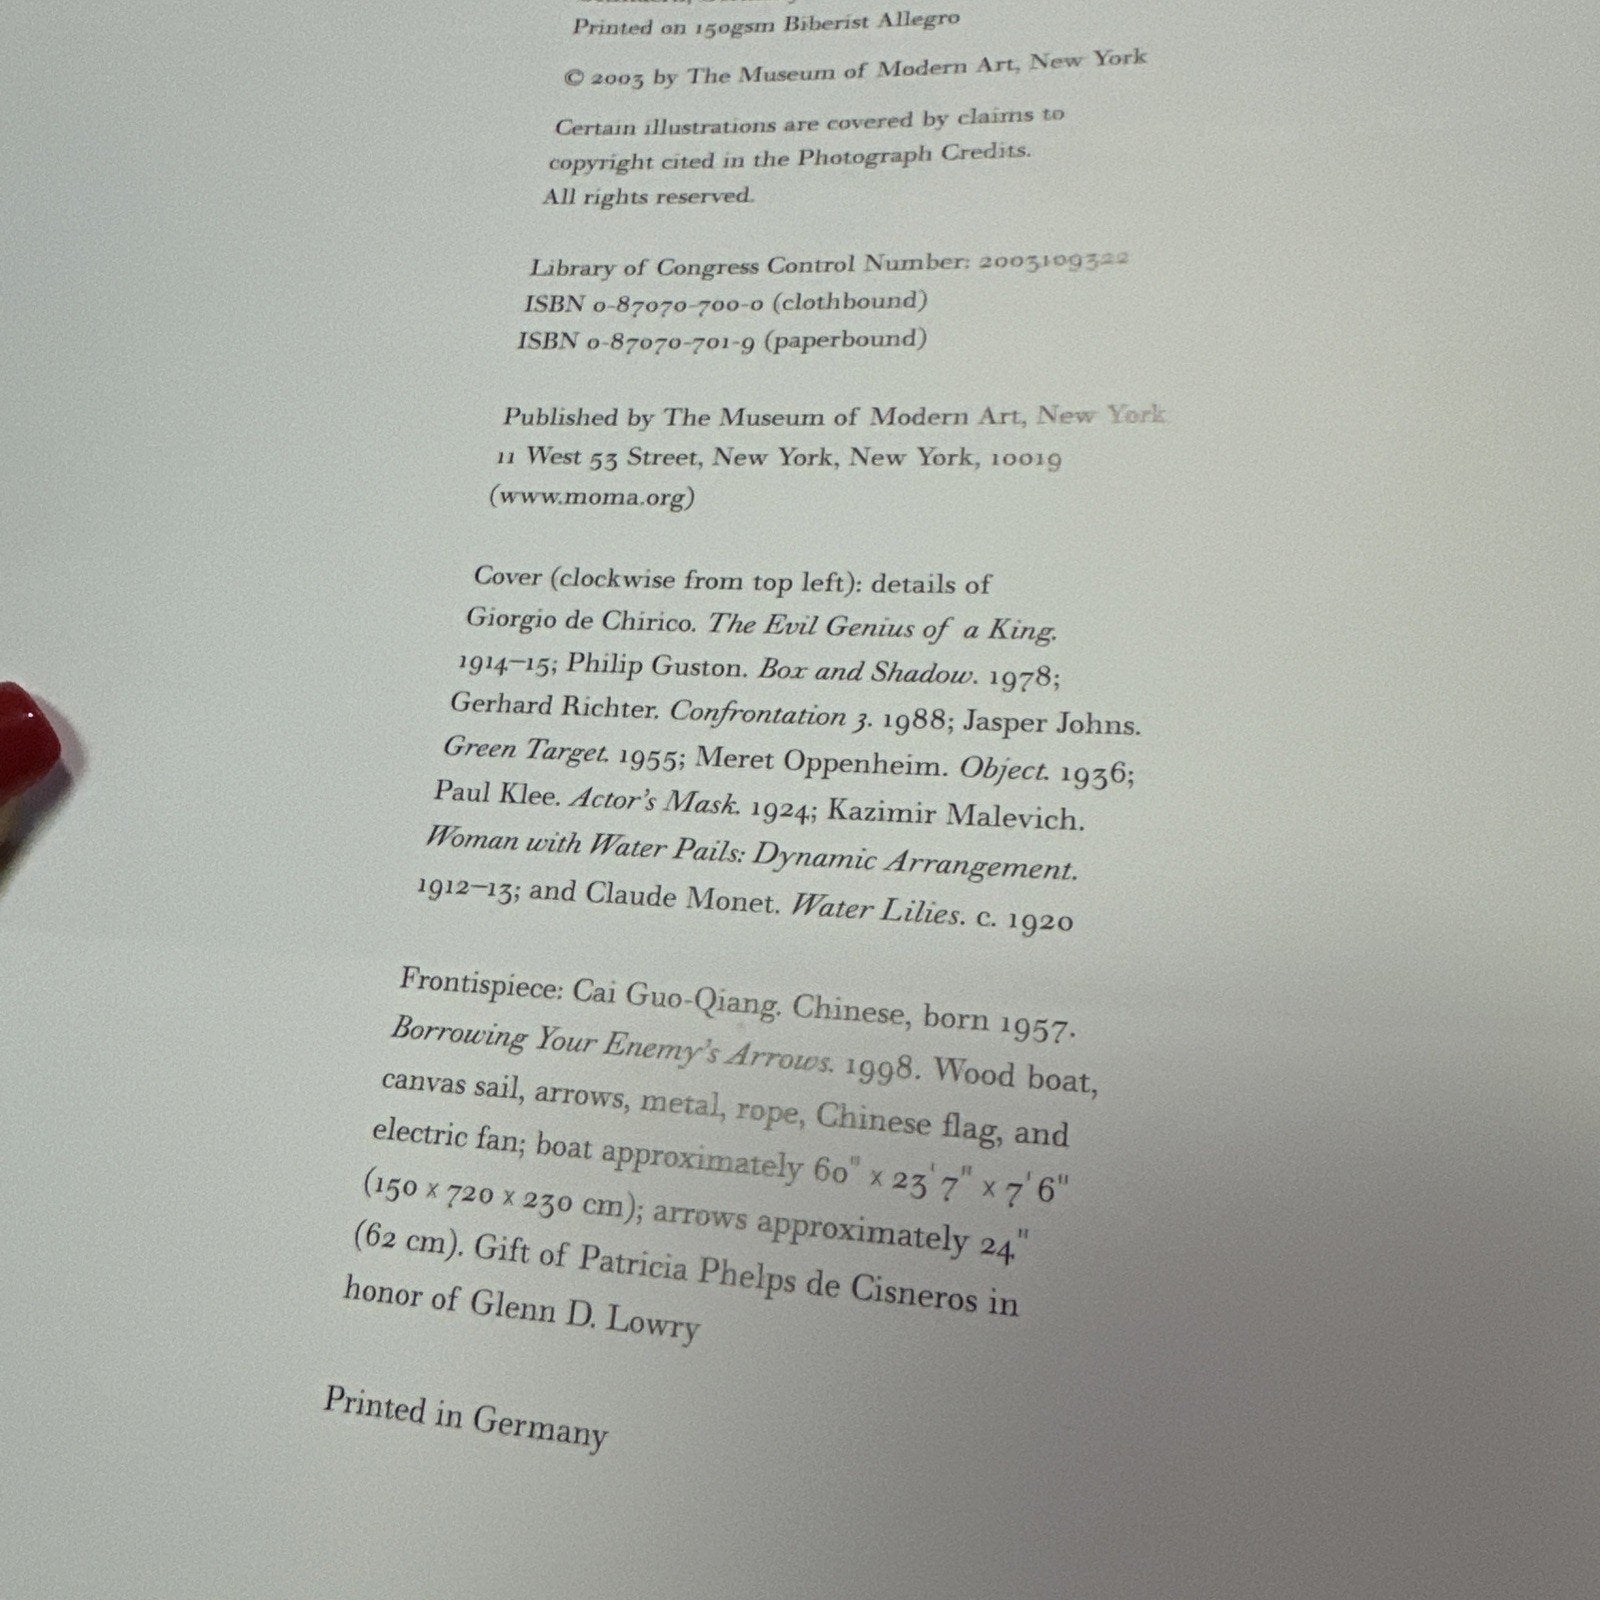 Printed on 150gsm Biberist Allegro
© 2003 by The Museum of Modern Art, New York
Certain illustrations are covered by claims to
copyright cited in the Photograph Credits.
All rights reserved.
Library of Congress Control Number: 2003109322
ISBN 0-87070-700-0 (clothbound)
ISBN 0-87070-701-9 (paperbound)
Published by The Museum of Modern Art, New York
11 West 53 Street, New York, New York, 10019
(www.moma.org)
Cover (clockwise from top left): details of
Giorgio de Chirico. The Evil Genius of a King.
1914–15; Philip Guston. Box and Shadow. 1978;
Gerhard Richter. Confrontation 3. 1988; Jasper Johns.
Green Target. 1955; Meret Oppenheim. Object. 1936;
Paul Klee. Actor's Mask. 1924; Kazimir Malevich.
Woman with Water Pails: Dynamic Arrangement.
1912–13; and Claude Monet. Water Lilies. c. 1920
Frontispiece: Cai Guo-Qiang. Chinese, born 1957.
Borrowing Your Enemy's Arrows. 1998. Wood boat,
canvas sail, arrows, metal, rope, Chinese flag, and
electric fan; boat approximately 60" x 23' 7" x 7' 6"
(150 x 720 x 230 cm); arrows approximately 24"
(62 cm). Gift of Patricia Phelps de Cisneros in
honor of Glenn D. Lowry
Printed in Germany